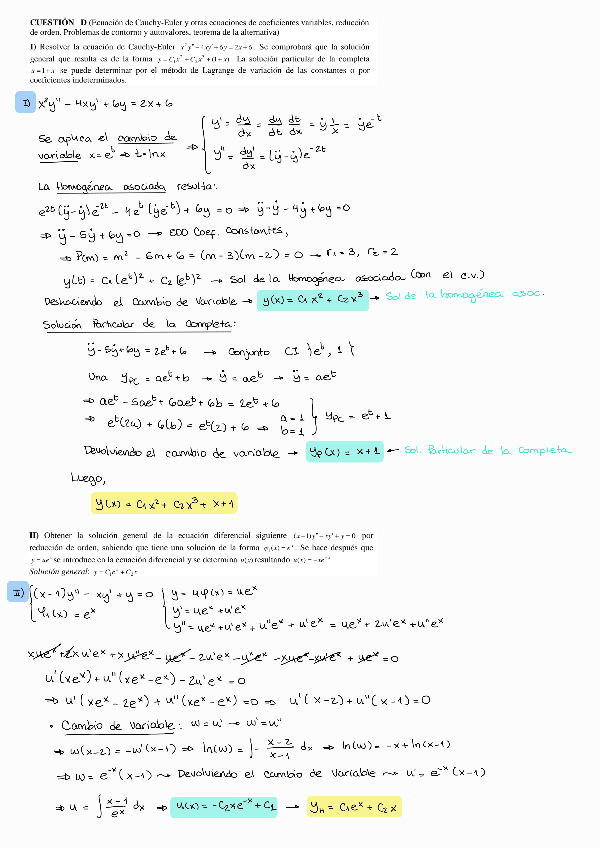 CUESTIÓN D (Ecuación de Cauchy-Euler y otras ecuaciones de coeficientes variables, reducción
de orden. Problemas de contorno y autovalores, teorema de la alternativa)
I) Resolver la ecuación de Cauchy-Euler x²y''−4xy'+6y=2x+6. Se comprobará que la solución
general que resulta es de la forma y=C₁x²+C₂x³+(1+x) La solución particular de la completa
x=1+x se puede determinar por el método de Lagrange de variación de las constantes o por
coeficientes indeterminados.
I) x²y'' − 4xy' + 6y = 2x + 6
Se aplica el cambio de
variable x = eᵗ ⇒ t = lnx ⇒
y' = dy/dx = dy/dt dt/dx = ẏ 1/x = ẏe⁻ᵗ
y'' = dy'/dx = (ÿ − ẏ)e⁻²ᵗ
La Homogénea asociada resulta:
e²ᵗ(ÿ−ẏ)e⁻²ᵗ − 4eᵗ(ẏe⁻ᵗ) + 6y = 0 ⇒ ÿ − ẏ − 4ẏ + 6y = 0
⇒ ÿ − 5ẏ + 6y = 0 → EDO Coef. Constantes,
⇒ P(m) = m² − 5m + 6 = (m−3)(m−2) = 0 → r₁ = 3, r₂ = 2
y(t) = C₁(eᵗ)² + C₂(eᵗ)² → Sol de la Homogénea asociada (con el c.v.)
Deshaciendo el Cambio de Variable → y(x) = C₁x² + C₂x³ → Sol de la homogénea asoc.
Solución Particular de la Completa:
ÿ − 5ẏ + 6y = 2eᵗ + 6 → Conjunto CI {eᵗ, 1}
Una y_PC = aeᵗ + b → ẏ = aeᵗ → ÿ = aeᵗ
⇒ aeᵗ − 5aeᵗ + 6aeᵗ + 6b = 2eᵗ + 6
⇒ eᵗ(2a) + 6(b) = eᵗ(2) + 6 ⇒ a = 1 b = 1 } y_PC = eᵗ + 1
Devolviendo el cambio de variable → y_p(x) = x + 1 ← Sol. Particular de la Completa
Luego,
y(x) = C₁x² + C₂x³ + x + 1
II) Obtener la solución general de la ecuación diferencial siguiente (x−1)y''−xy'+y=0 por
reducción de orden, sabiendo que tiene una solución de la forma φ₁(x)=eˣ. Se hace después que
y=ueˣ se introduce en la ecuación diferencial y se determina u(x) resultando u(x)=−xe⁻ˣ
Solución general: y=C₁eˣ+C₂x
II) (x−1)y'' − xy' + y = 0
φ₁(x) = eˣ
y = uφ(x) = ueˣ
y' = ueˣ + u'eˣ
y'' = ueˣ + u'eˣ + u''eˣ + u'eˣ = ueˣ + 2u'eˣ + u''eˣ
xueˣ + 2xu'eˣ + xu''eˣ − ueˣ − 2u'eˣ − u''eˣ − xueˣ − xu'eˣ + ueˣ = 0
u'(xeˣ) + u''(xeˣ − eˣ) − 2u'eˣ = 0
⇒ u'(xeˣ − 2eˣ) + u''(xeˣ − eˣ) = 0 ⇒ u'(x−2) + u''(x−1) = 0
• Cambio de Variable: w = u' → w' = u''
⇒ w(x−2) = −w'(x−1) ⇒ ln(w) = ∫ − x−2/x−1 dx ⇒ ln(w) = −x + ln(x−1)
⇒ w = e⁻ˣ(x−1) ⤳ Devolviendo el cambio de variable ⤳ u' = e⁻ˣ(x−1)
⇒ u = ∫ x−1/eˣ dx ⇒ u(x) = −C₂xe⁻ˣ + C₁ → y_h = C₁eˣ + C₂x